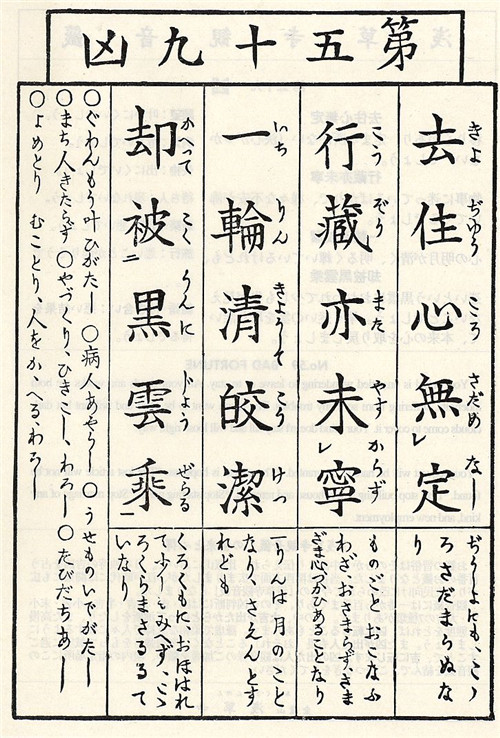 第五十九凶
きよ ぢゆう こゝろ さだめ なし
去住心無レ定
ぢうしよにも、こゝ
ろさだまらぬな
り
こう ぞう また やすからず
行藏亦未レ寧
ものごと、おこなふ
わざ、おさまらず、さま
ざま心づかひあることなり
いち りん きよう こう けつ
一輪清皎潔
一りんは、月のこと
なりさえんとす
れども
かへつて こくうんに じよ ぜらる
却被二黒雲乘
に、おほはれ
て少しもみへず、こゝ
ろくらまさるるて
いなり
○ぐわんもう叶ひがたし ○病人あやうし ○うせものいでがたし
○まち人きたらず ○やづくり、ひきこし、わろし ○たびだちあしし
○よめとり むことり、人をかゝへる、わろし